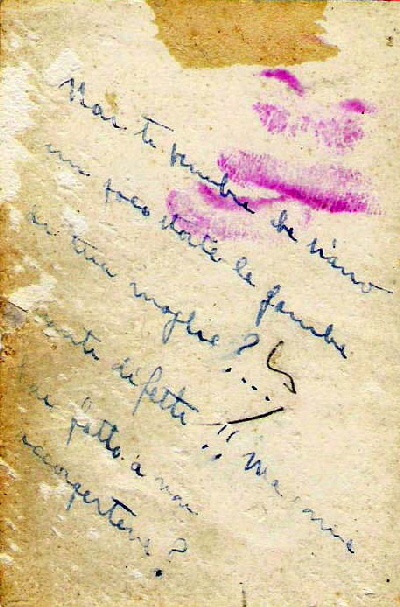 Non te sembra che siano
un poco storte le gambe
di tua moglie? ....
quanti difetti!! Ma come
hai fatto a non
accorgertene?